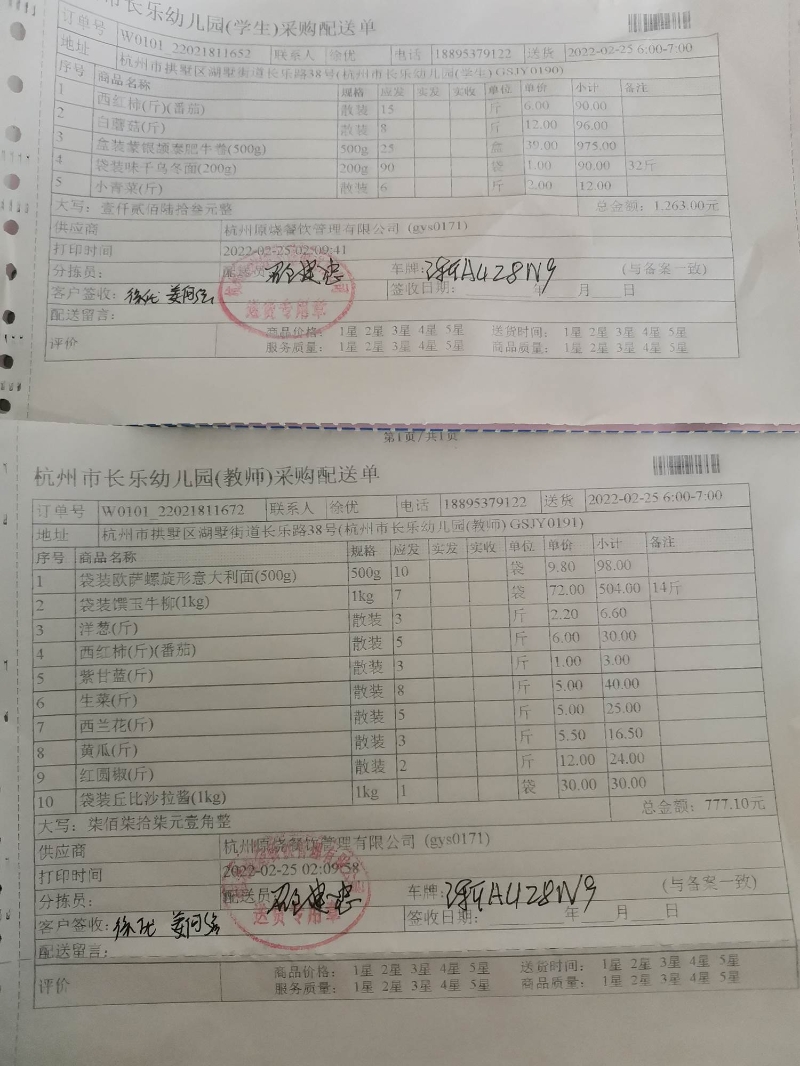 市长乐幼儿园(学生)采购配送单
订单号 W0101_22021811652 联系人 徐优 电话 18895379122 送货 2022-02-25 6:00-7:00
地址 杭州市拱墅区湖墅街道长乐路38号(杭州市长乐幼儿园(学生) GSJY0190)
序号 商品名称 规格 应发 实发 实收 单位 单价 小计 备注
1 西红柿(斤)(番茄) 散装 15 斤 6.00 90.00
2 白蘑菇(斤) 散装 8 斤 12.00 96.00
3 盒装蒙银颉泰肥牛卷(500g) 500g 25 盒 39.00 975.00
4 袋装味千乌冬面(200g) 200g 90 袋 1.00 90.00 32斤
5 小青菜(斤) 散装 6 斤 2.00 12.00
大写：壹仟贰佰陆拾叁元整 总金额：1,263.00元
供应商 杭州原烧餐饮管理有限公司 (gys0171)
打印时间 2022-02-25 02:09:41
分拣员： 配送员 车牌：浙A428W9 (与备案一致)
客户签收： 签收日期： 年 月 日
送货专用章
配送留言：
评价 商品价格： 1星 2星 3星 4星 5星 送货时间： 1星 2星 3星 4星 5星
服务质量： 1星 2星 3星 4星 5星 商品质量： 1星 2星 3星 4星 5星
第1页/共1页
杭州市长乐幼儿园(教师)采购配送单
订单号 W0101_22021811672 联系人 徐优 电话 18895379122 送货 2022-02-25 6:00-7:00
地址 杭州市拱墅区湖墅街道长乐路38号(杭州市长乐幼儿园(教师) GSJY0191)
序号 商品名称 规格 应发 实发 实收 单位 单价 小计 备注
1 袋装欧萨螺旋形意大利面(500g) 500g 10 袋 9.80 98.00
2 袋装馔玉牛柳(1kg) 1kg 7 袋 72.00 504.00 14斤
3 洋葱(斤) 散装 3 斤 2.20 6.60
4 西红柿(斤)(番茄) 散装 5 斤 6.00 30.00
5 紫甘蓝(斤) 散装 3 斤 1.00 3.00
6 生菜(斤) 散装 8 斤 5.00 40.00
7 西兰花(斤) 散装 5 斤 5.00 25.00
8 黄瓜(斤) 散装 3 斤 5.50 16.50
9 红圆椒(斤) 散装 2 斤 12.00 24.00
10 袋装丘比沙拉酱(1kg) 1kg 1 袋 30.00 30.00
大写：柒佰柒拾柒元壹角整 总金额：777.10元
供应商 杭州原烧餐饮管理有限公司 (gys0171)
打印时间 2022-02-25 02:09:58
分拣员： 配送员 车牌：浙A428W9 (与备案一致)
客户签收： 签收日期： 年 月 日
送货专用章
配送留言：
评价 商品价格： 1星 2星 3星 4星 5星 送货时间： 1星 2星 3星 4星 5星
服务质量： 1星 2星 3星 4星 5星 商品质量： 1星 2星 3星 4星 5星